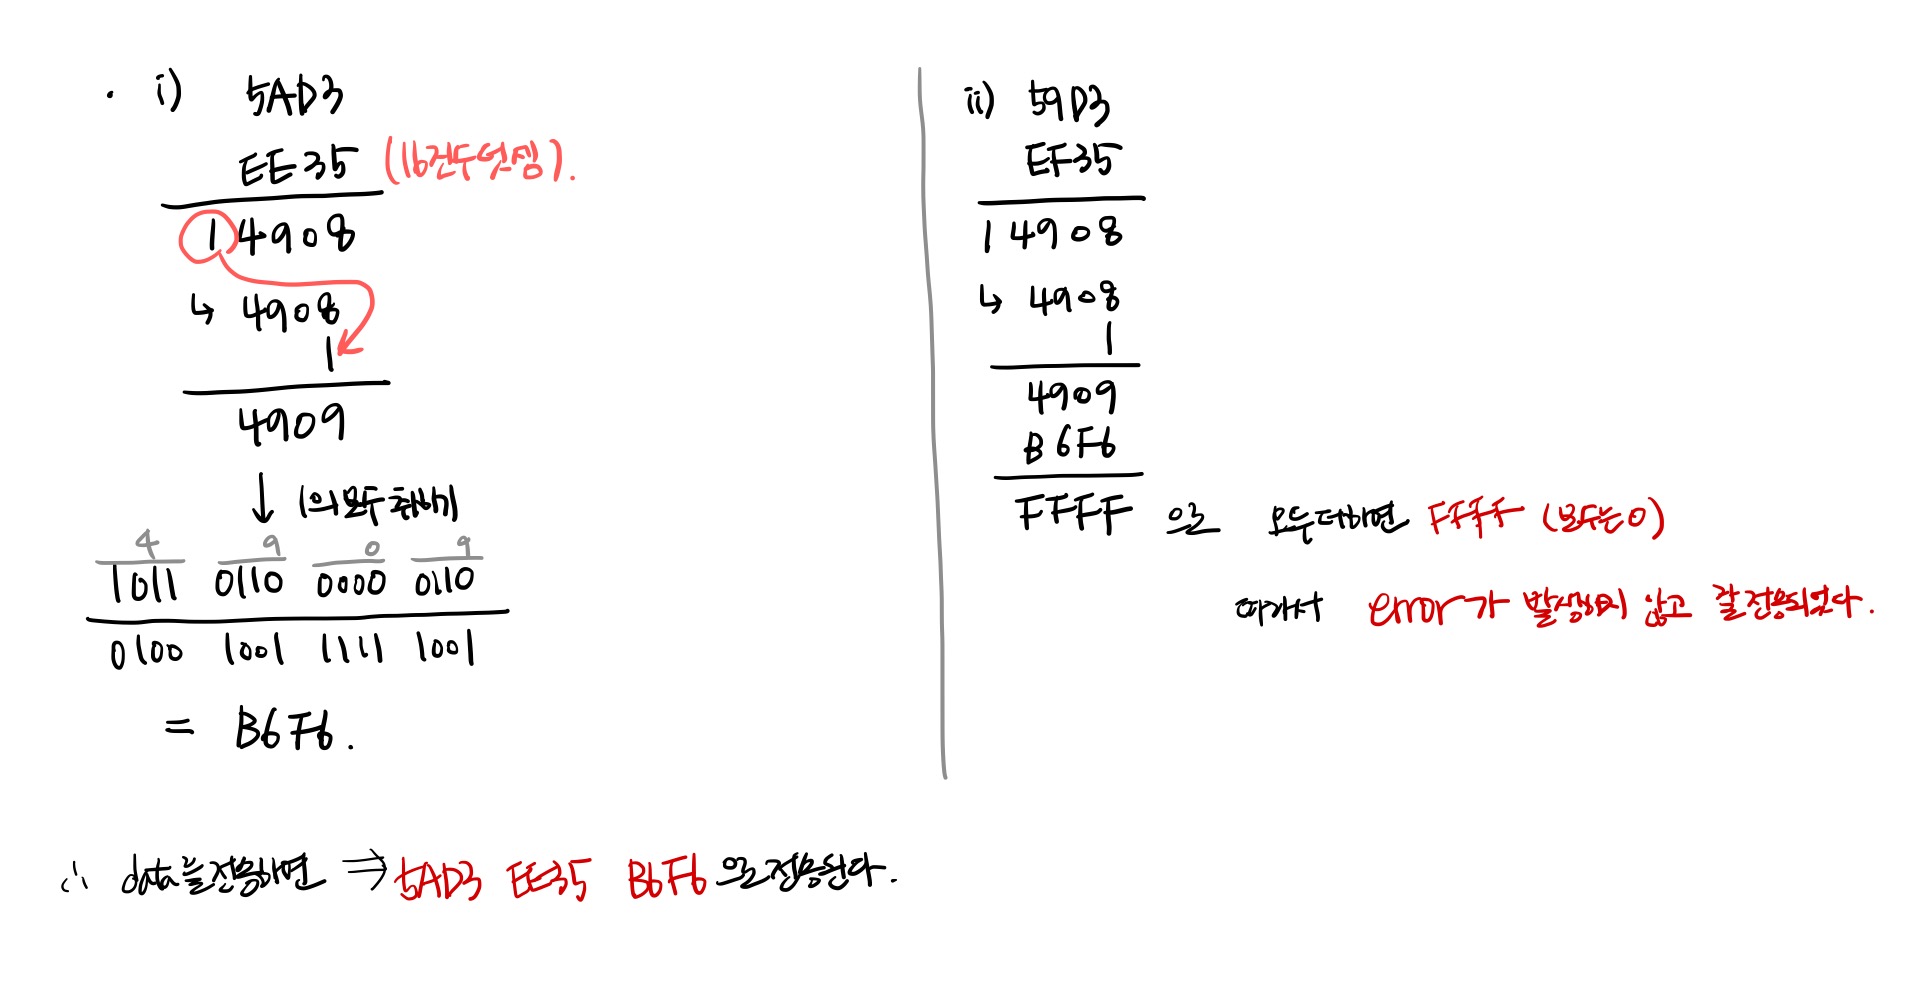 · i) 5AD3
EE35 (16진수덧셈).
1 4908
↳ 4908
1
4909
↓ 1의보수취하기
4 9 0 9
1011 0110 0000 0110
0100 1001 1111 1001
= B6F6.
ii) 59D3
EF35
1 4908
↳ 4908
1
4909
B6F6
FFFF 으로 모두더하면 FFFF (보수는0)
따라서 error가 발생하지 않고 잘전송되었다.
∴ data를전송하면 ⇒ 5AD3 EE35 B6F6 으로전송한다.